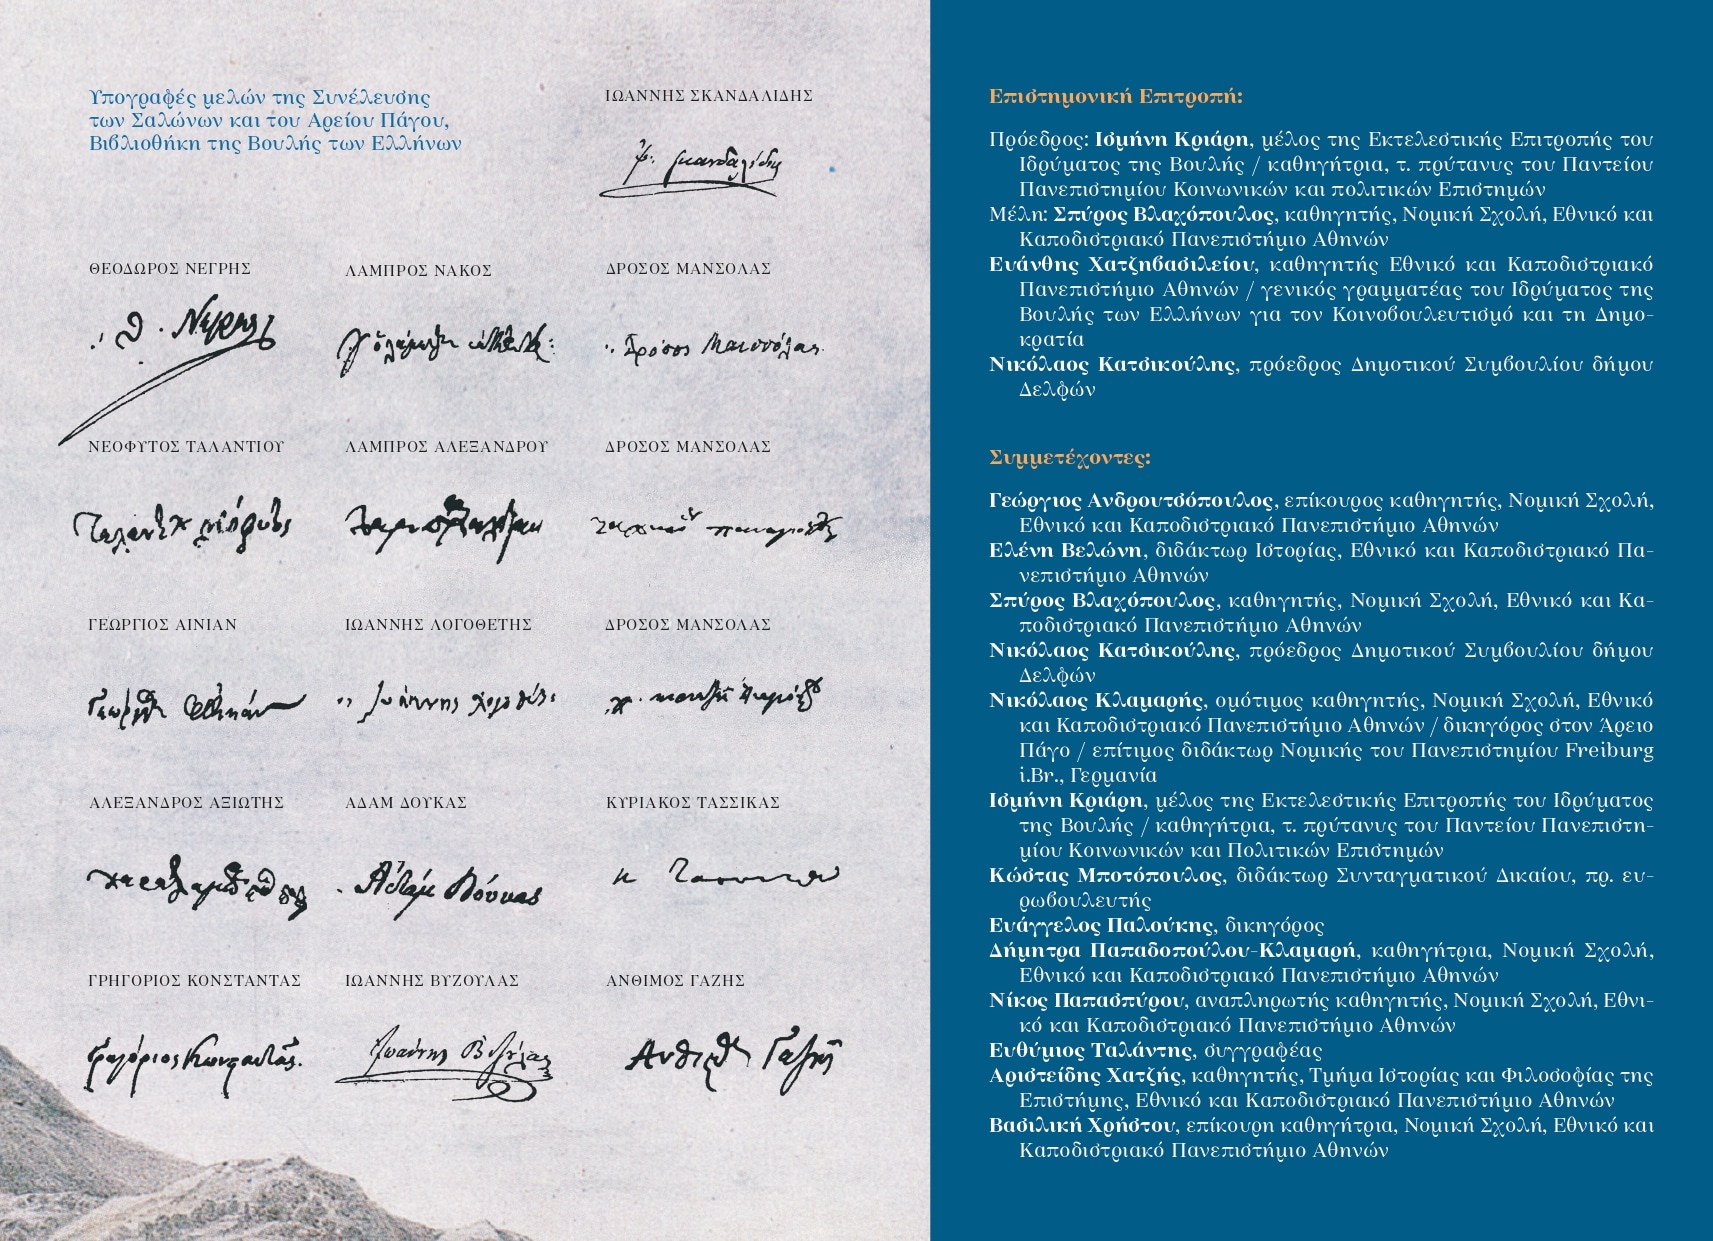 Υπογραφές μελών της Συνέλευσης
των Σαλώνων και του Αρείου Πάγου,
Βιβλιοθήκη της Βουλής των Ελλήνων
ΙΩΑΝΝΗΣ ΣΚΑΝΔΑΛΙΔΗΣ
ΘΕΟΔΩΡΟΣ ΝΕΓΡΗΣ
ΛΑΜΠΡΟΣ ΝΑΚΟΣ
ΔΡΟΣΟΣ ΜΑΝΣΟΛΑΣ
Θ. Νέγρης
Δρόσος Μανσόλας
ΝΕΟΦΥΤΟΣ ΤΑΛΑΝΤΙΟΥ
ΛΑΜΠΡΟΣ ΑΛΕΞΑΝΔΡΟΥ
ΔΡΟΣΟΣ ΜΑΝΣΟΛΑΣ
ΓΕΩΡΓΙΟΣ ΑΙΝΙΑΝ
ΙΩΑΝΝΗΣ ΛΟΓΟΘΕΤΗΣ
ΔΡΟΣΟΣ ΜΑΝΣΟΛΑΣ
ΑΛΕΞΑΝΔΡΟΣ ΑΞΙΩΤΗΣ
ΑΔΑΜ ΔΟΥΚΑΣ
ΚΥΡΙΑΚΟΣ ΤΑΣΣΙΚΑΣ
Αδάμ Δούκας
ΓΡΗΓΟΡΙΟΣ ΚΟΝΣΤΑΝΤΑΣ
ΙΩΑΝΝΗΣ ΒΥΖΟΥΛΑΣ
ΑΝΘΙΜΟΣ ΓΑΖΗΣ
Επιστημονική Επιτροπή:
Πρόεδρος: Ισμήνη Κριάρη, μέλος της Εκτελεστικής Επιτροπής του
Ιδρύματος της Βουλής / καθηγήτρια, τ. πρύτανυς του Παντείου
Πανεπιστημίου Κοινωνικών και πολιτικών Επιστημών
Μέλη: Σπύρος Βλαχόπουλος, καθηγητής, Νομική Σχολή, Εθνικό και
Καποδιστριακό Πανεπιστήμιο Αθηνών
Ευάνθης Χατζηβασιλείου, καθηγητής Εθνικό και Καποδιστριακό
Πανεπιστήμιο Αθηνών / γενικός γραμματέας του Ιδρύματος της
Βουλής των Ελλήνων για τον Κοινοβουλευτισμό και τη Δημο-
κρατία
Νικόλαος Κατσικούλης, πρόεδρος Δημοτικού Συμβουλίου δήμου
Δελφών
Συμμετέχοντες:
Γεώργιος Ανδρουτσόπουλος, επίκουρος καθηγητής, Νομική Σχολή,
Εθνικό και Καποδιστριακό Πανεπιστήμιο Αθηνών
Ελένη Βελώνη, διδάκτωρ Ιστορίας, Εθνικό και Καποδιστριακό Πα-
νεπιστήμιο Αθηνών
Σπύρος Βλαχόπουλος, καθηγητής, Νομική Σχολή, Εθνικό και Κα-
ποδιστριακό Πανεπιστήμιο Αθηνών
Νικόλαος Κατσικούλης, πρόεδρος Δημοτικού Συμβουλίου δήμου
Δελφών
Νικόλαος Κλαμαρής, ομότιμος καθηγητής, Νομική Σχολή, Εθνικό
και Καποδιστριακό Πανεπιστήμιο Αθηνών / δικηγόρος στον Άρειο
Πάγο / επίτιμος διδάκτωρ Νομικής του Πανεπιστημίου Freiburg
i.Br., Γερμανία
Ισμήνη Κριάρη, μέλος της Εκτελεστικής Επιτροπής του Ιδρύματος
της Βουλής / καθηγήτρια, τ. πρύτανυς του Παντείου Πανεπιστη-
μίου Κοινωνικών και Πολιτικών Επιστημών
Κώστας Μποτόπουλος, διδάκτωρ Συνταγματικού Δικαίου, πρ. ευ-
ρωβουλευτής
Ευάγγελος Παλούκης, δικηγόρος
Δήμητρα Παπαδοπούλου-Κλαμαρή, καθηγήτρια, Νομική Σχολή,
Εθνικό και Καποδιστριακό Πανεπιστήμιο Αθηνών
Νίκος Παπασπύρου, αναπληρωτής καθηγητής, Νομική Σχολή, Εθνι-
κό και Καποδιστριακό Πανεπιστήμιο Αθηνών
Ευθύμιος Ταλάντης, συγγραφέας
Αριστείδης Χατζής, καθηγητής, Τμήμα Ιστορίας και Φιλοσοφίας της
Επιστήμης, Εθνικό και Καποδιστριακό Πανεπιστήμιο Αθηνών
Βασιλική Χρήστου, επίκουρη καθηγήτρια, Νομική Σχολή, Εθνικό και
Καποδιστριακό Πανεπιστήμιο Αθηνών